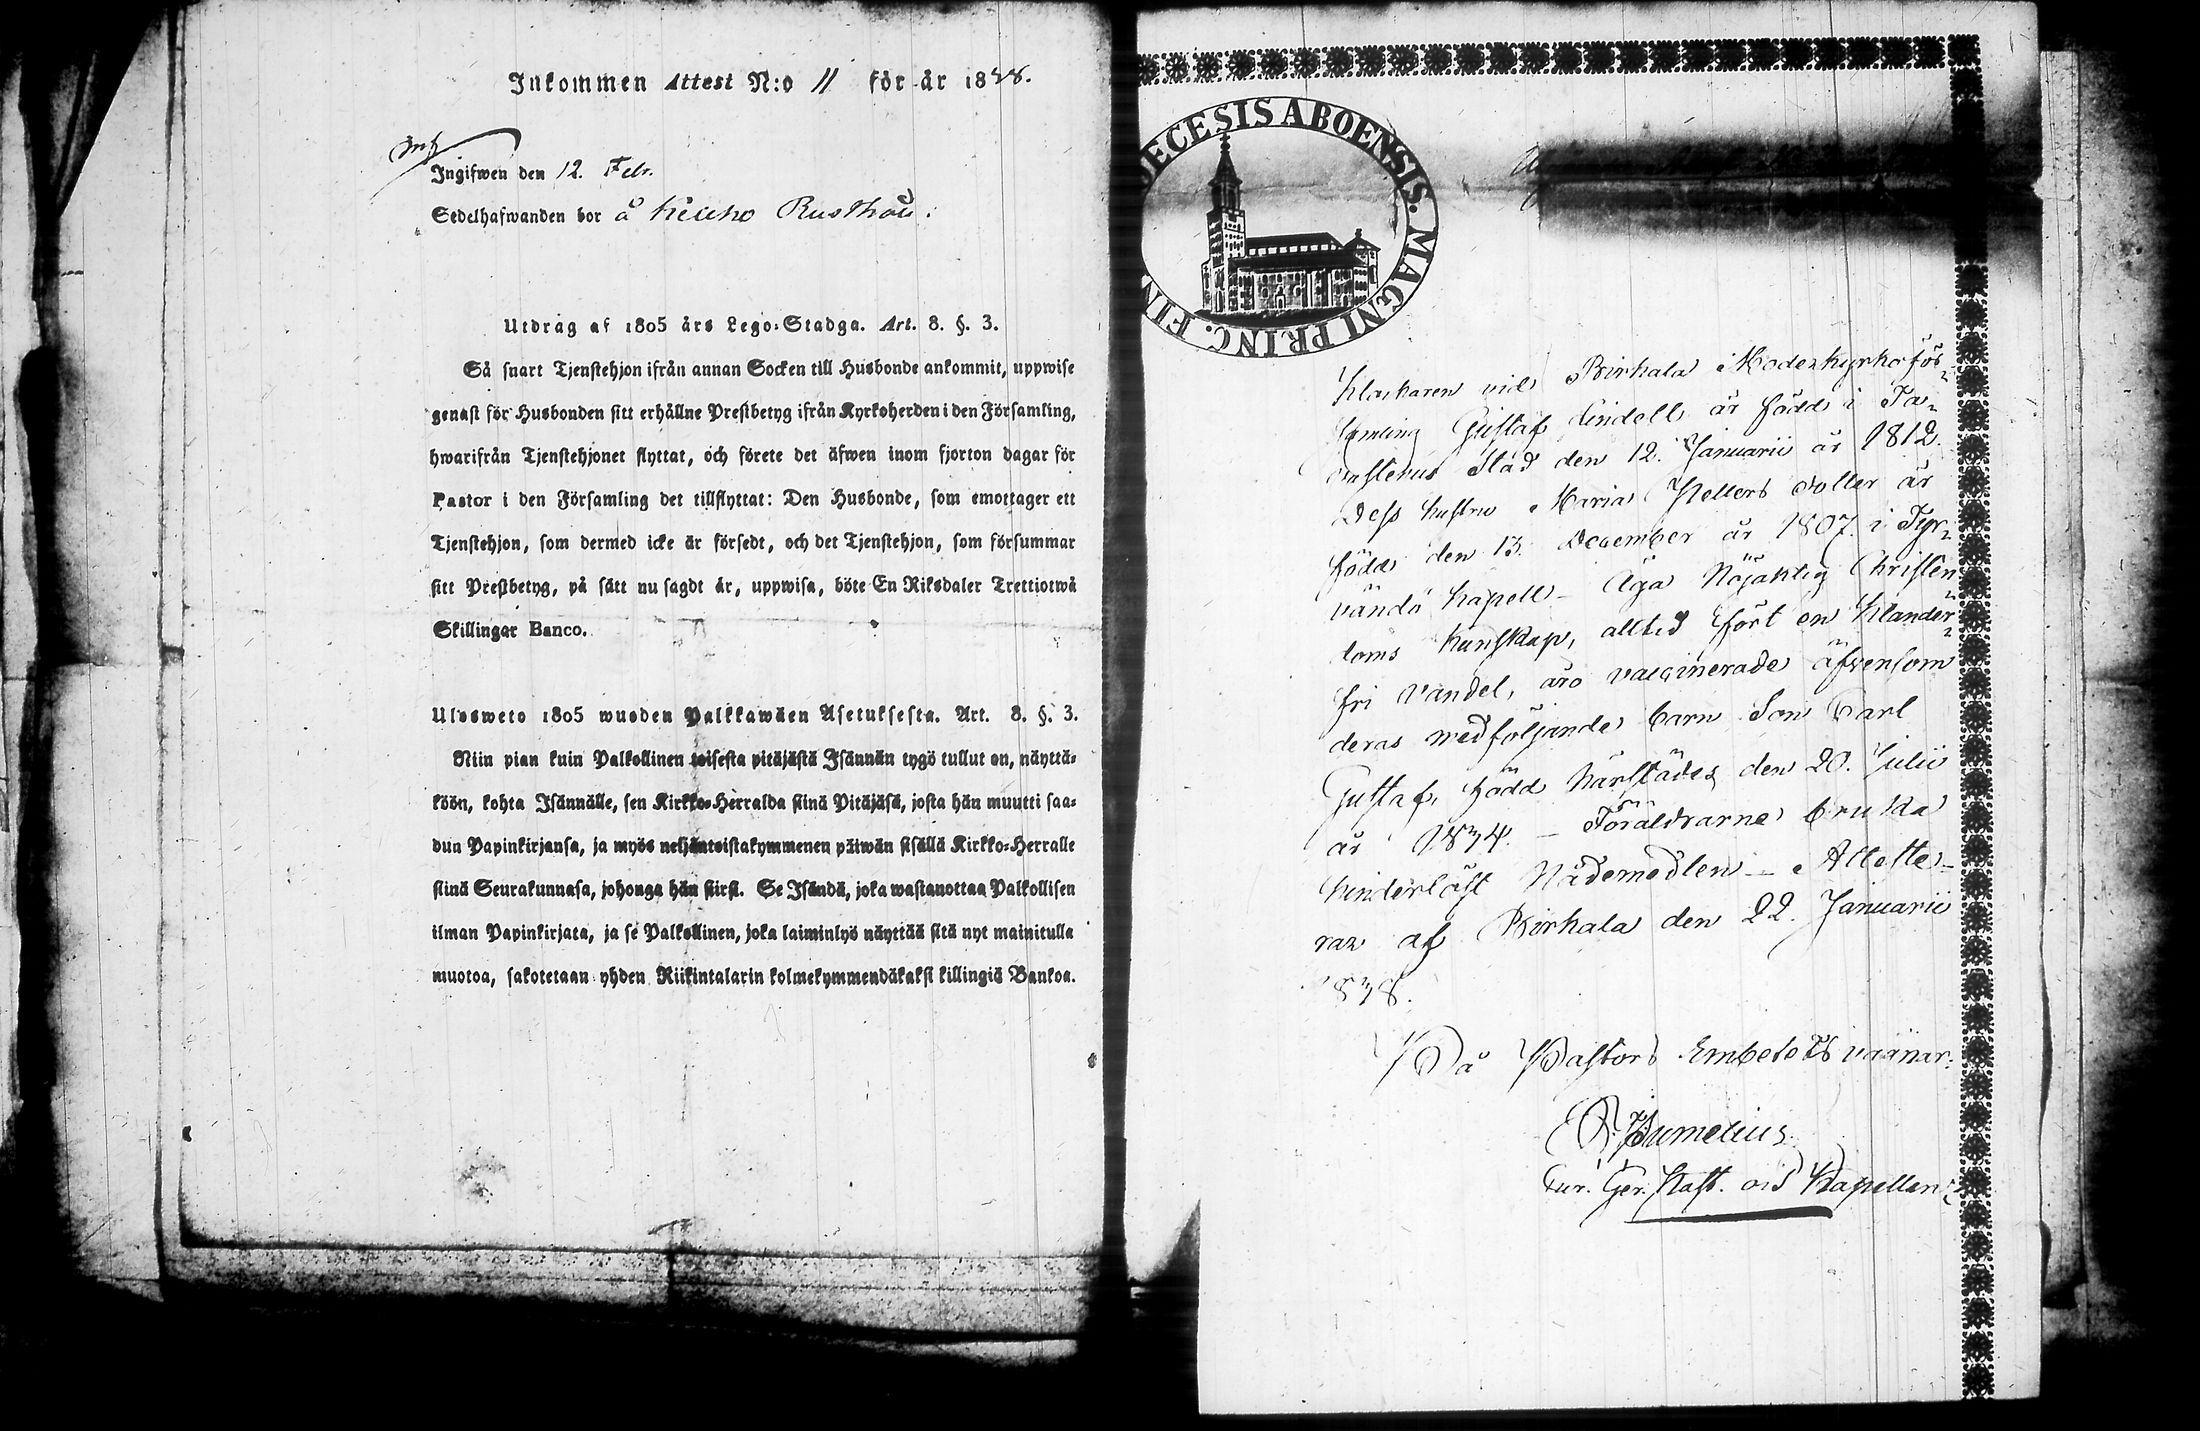 Inkommen Attest N:o 11 för år 1838.
Ingifwen den 12. Febr.
Sedelhafwanden bor å Kiucho Rusthåll.
Utdrag af 1805 års Lego-Stadga. Art. 8. §. 3.
Så snart Tjenstehjon ifrån annan Socken till Husbonde ankommit, uppwise
genast för Husbonden sitt erhållne Prestbetyg ifrån Kyrkoherden i den Församling,
hwarifrån Tjenstehjonet flyttat, och förete det äfwen inom fjorton dagar för
Pastor i den Församling det tillflyttat: Den Husbonde, som emottager ett
Tjenstehjon, som dermed icke är försedt, och det Tjenstehjon, som försummar
sitt Prestbetyg, på sätt nu sagdt är, uppwisa, böte En Riksdaler Trettiotwå
Skillingar Banco.
Ulosweto 1805 wuoden Palkkawäen Asetuksesta. Art. 8. §. 3.
Niin pian kuin Palkollinen toisesta pitäjästä Isännän tygö tullut on, näyttä-
köön, kohta Isännälle, sen Kirkko-Herralda siinä Pitäjäsä, josta hän muutti saa-
dun Papinkirjansa, ja myös neljäntoistakymmenen päiwän sisällä Kirkko-Herralle
siinä Seurakunnasa, johonga hän siirsi. Se Isändä, joka wastanottaa Palkollisen
ilman Papinkirjata, ja se Palkollinen, joka laiminlyö näyttää sitä nyt mainitulla
muotoa, sakotetaan yhden Riikintalarin kolmekymmendäkaksi killingiä Bankoa.
DIOECESIS ABOENSIS. MAGNI PRINC. FIN
Klockaren vid Birkala Moderkyrko för-
samling Gustaf Lindell är född i Ta-
vastehus Stad den 12. Januarii år 1812.
Dess hustru Maria Kellers dotter är
född den 13. December år 1807. i Tyr-
vändö Kapell - Äga Nöjaktig Christen-
doms kunskap, alltid fört en klander-
fri vandel, äro vaccinerade äfvensom
deras medföljande barn Son Carl
Gustaf, född härstädes den 20. Julii
år 1834. - Föräldrarne bruka
hinderlöst Nådemedlen - Atteste-
rar af Birkala den 22. Januarii
1838.
På Pastors Embetets vägnar:
Cur. Ger. Past. vid Kapellen